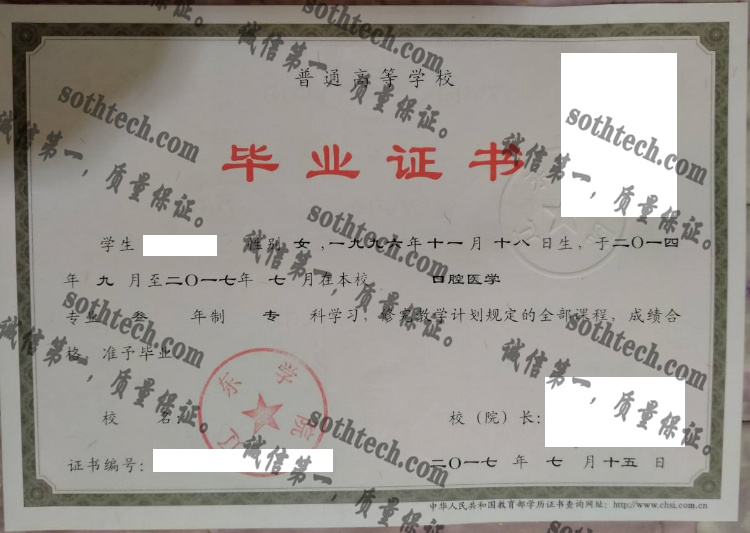 普通高等学校
毕业证书
学生 性别 女,一九九六年十一月十八日生,于二〇一四
年九月至二〇一七年七月在本校 口腔医学
专业 叁 年制 专 科学习,修完教学计划规定的全部课程,成绩合
格,准予毕业
校 名:
校(院)长:
证书编号:
二〇一七年七月十五日
中华人民共和国教育部学历证书查询网址:http://www.chsi.com.cn
东学院
sothtech.com
诚信第一,质量保证。
sothtech.com
诚信第一,质量保证。
sothtech.com
诚信第一,质量保证。
sothtech.com
诚信第一,质量保证。
sothtech.com
诚信第一,质量保证。
sothtech.com
诚信第一,质量保证。
sothtech.com
诚信第一,质量保证。